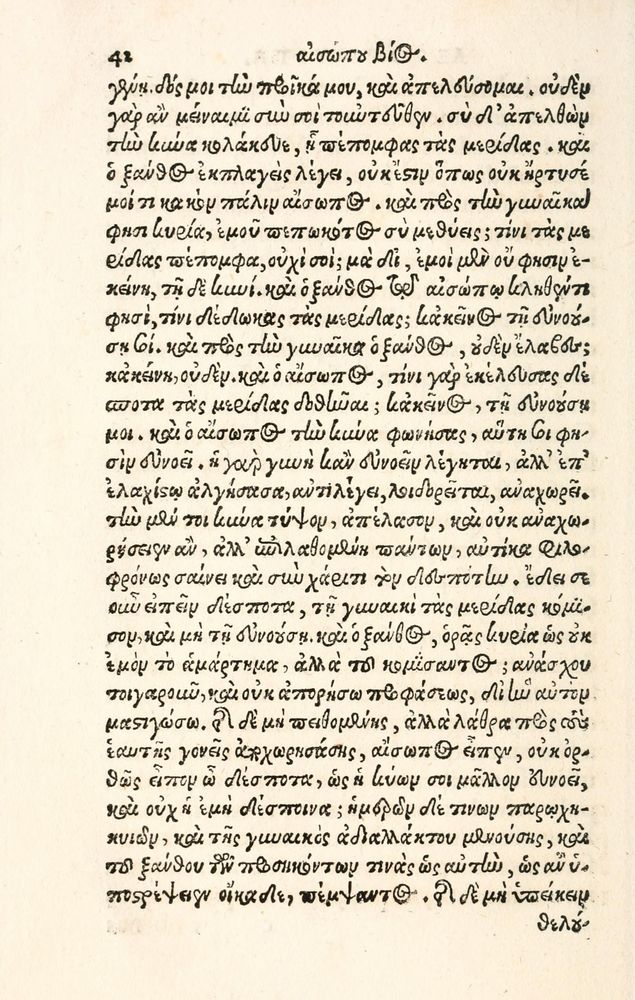 42 αἰσώπου βίος.
γεύη. δός μοι τὴν προῖκά μου, καὶ ἀπελεύσομαι. οὐδὲν
γὰρ ἂν μείναιμι σὺν σοὶ τοὐντεῦθεν. σὺ δ' ἀπελθὼν
τὴν κύνα κολάκευε, ᾗ πέπομφας τὰς μερίδας. καὶ
ὁ ξάνθος ἐκπλαγεὶς λέγει, οὐκ ἔστιν ὅπως οὐκ ἤρτυσέ
μοί τι κακὸν πάλιν αἴσωπος. καὶ πρὸς τὴν γυναῖκα
φησι κυρία, ἐμοῦ πεπωκότος σὺ μεθύεις; τίνι τὰς με
ρίδας πέπομφα, οὐχὶ σοί; μὰ δί, ἐμοὶ μὲν οὔ φησιν ἐ-
κείνη, τῇ δὲ κυνί. καὶ ὁ ξάνθος τῷ αἰσώπῳ κληθέντι
φησὶ, τίνι δέδωκας τὰς μερίδας; κἀκεῖνος τῇ εὐνού-
σῃ σοι. καὶ πρὸς τὴν γυναῖκα ὁ ξάνθος, οὐδὲν ἔλαβες;
κἀκείνη, οὐδέν. καὶ ὁ αἴσωπος, τίνι γὰρ ἐκέλευσας δέ
σποτα τὰς μερίδας δοθῆναι; κἀκεῖνος, τῇ εὐνούσῃ
μοι. καὶ ὁ αἴσωπος τὴν κύνα φωνήσας, αὕτη σοι φη-
σὶν εὐνοεῖ. ἡ γὰρ γυνὴ κἂν εὐνοεῖν λέγηται, ἀλλ' ἐπ'
ἐλαχίστῳ ἀλγήσασα, ἀντιλέγει, λοιδορεῖται, ἀναχωρεῖ.
τὴν μέν τοι κύνα τύψον, ἀπέλασον, καὶ οὐκ ἀναχω-
ρήσειεν ἂν, ἀλλ' ἐπιλαθομένη πάντων, αὐτίκα φιλο-
φρόνως σαίνει καὶ σὺν χάριτι τὸν δεσπότην. ἔδει σε
οὖν εἰπεῖν δέσποτα, τῇ γυναικὶ τὰς μερίδας κόμι-
σον, καὶ μὴ τῇ εὐνούσῃ. καὶ ὁ ξάνθος, ὁρᾷς κυρία ὡς οὐκ
ἐμὸν τὸ ἁμάρτημα, ἀλλὰ τοῦ κομίσαντος; ἀνάσχου
τοιγαροῦν, καὶ οὐκ ἀπορήσω προφάσεως, δι' ἣν αὐτὸν
μαστιγώσω. τῆς δὲ μὴ πειθομένης, ἀλλὰ λάθρα πρὸς τοὺς
ἑαυτῆς γονεῖς ἀναχωρησάσης, αἴσωπος εἶπεν, οὐκ ὀρ-
θῶς εἶπον ὦ δέσποτα, ὡς ἡ κύων σοι μᾶλλον εὐνοεῖ,
καὶ οὐχ ἡ ἐμὴ δέσποινα; ἡμερῶν δέ τινων παρῳχη-
κυιῶν, καὶ τῆς γυναικὸς ἀδιαλλάκτου μενούσης, καὶ
τοῦ ξάνθου τῶν προσηκόντων τινὰς ὡς αὐτὴν, ὡς ἂν ὑ-
ποστρέψειεν οἴκαδε, πέμψαντος. τῆς δὲ μὴ ὑπείκειν
θελού-